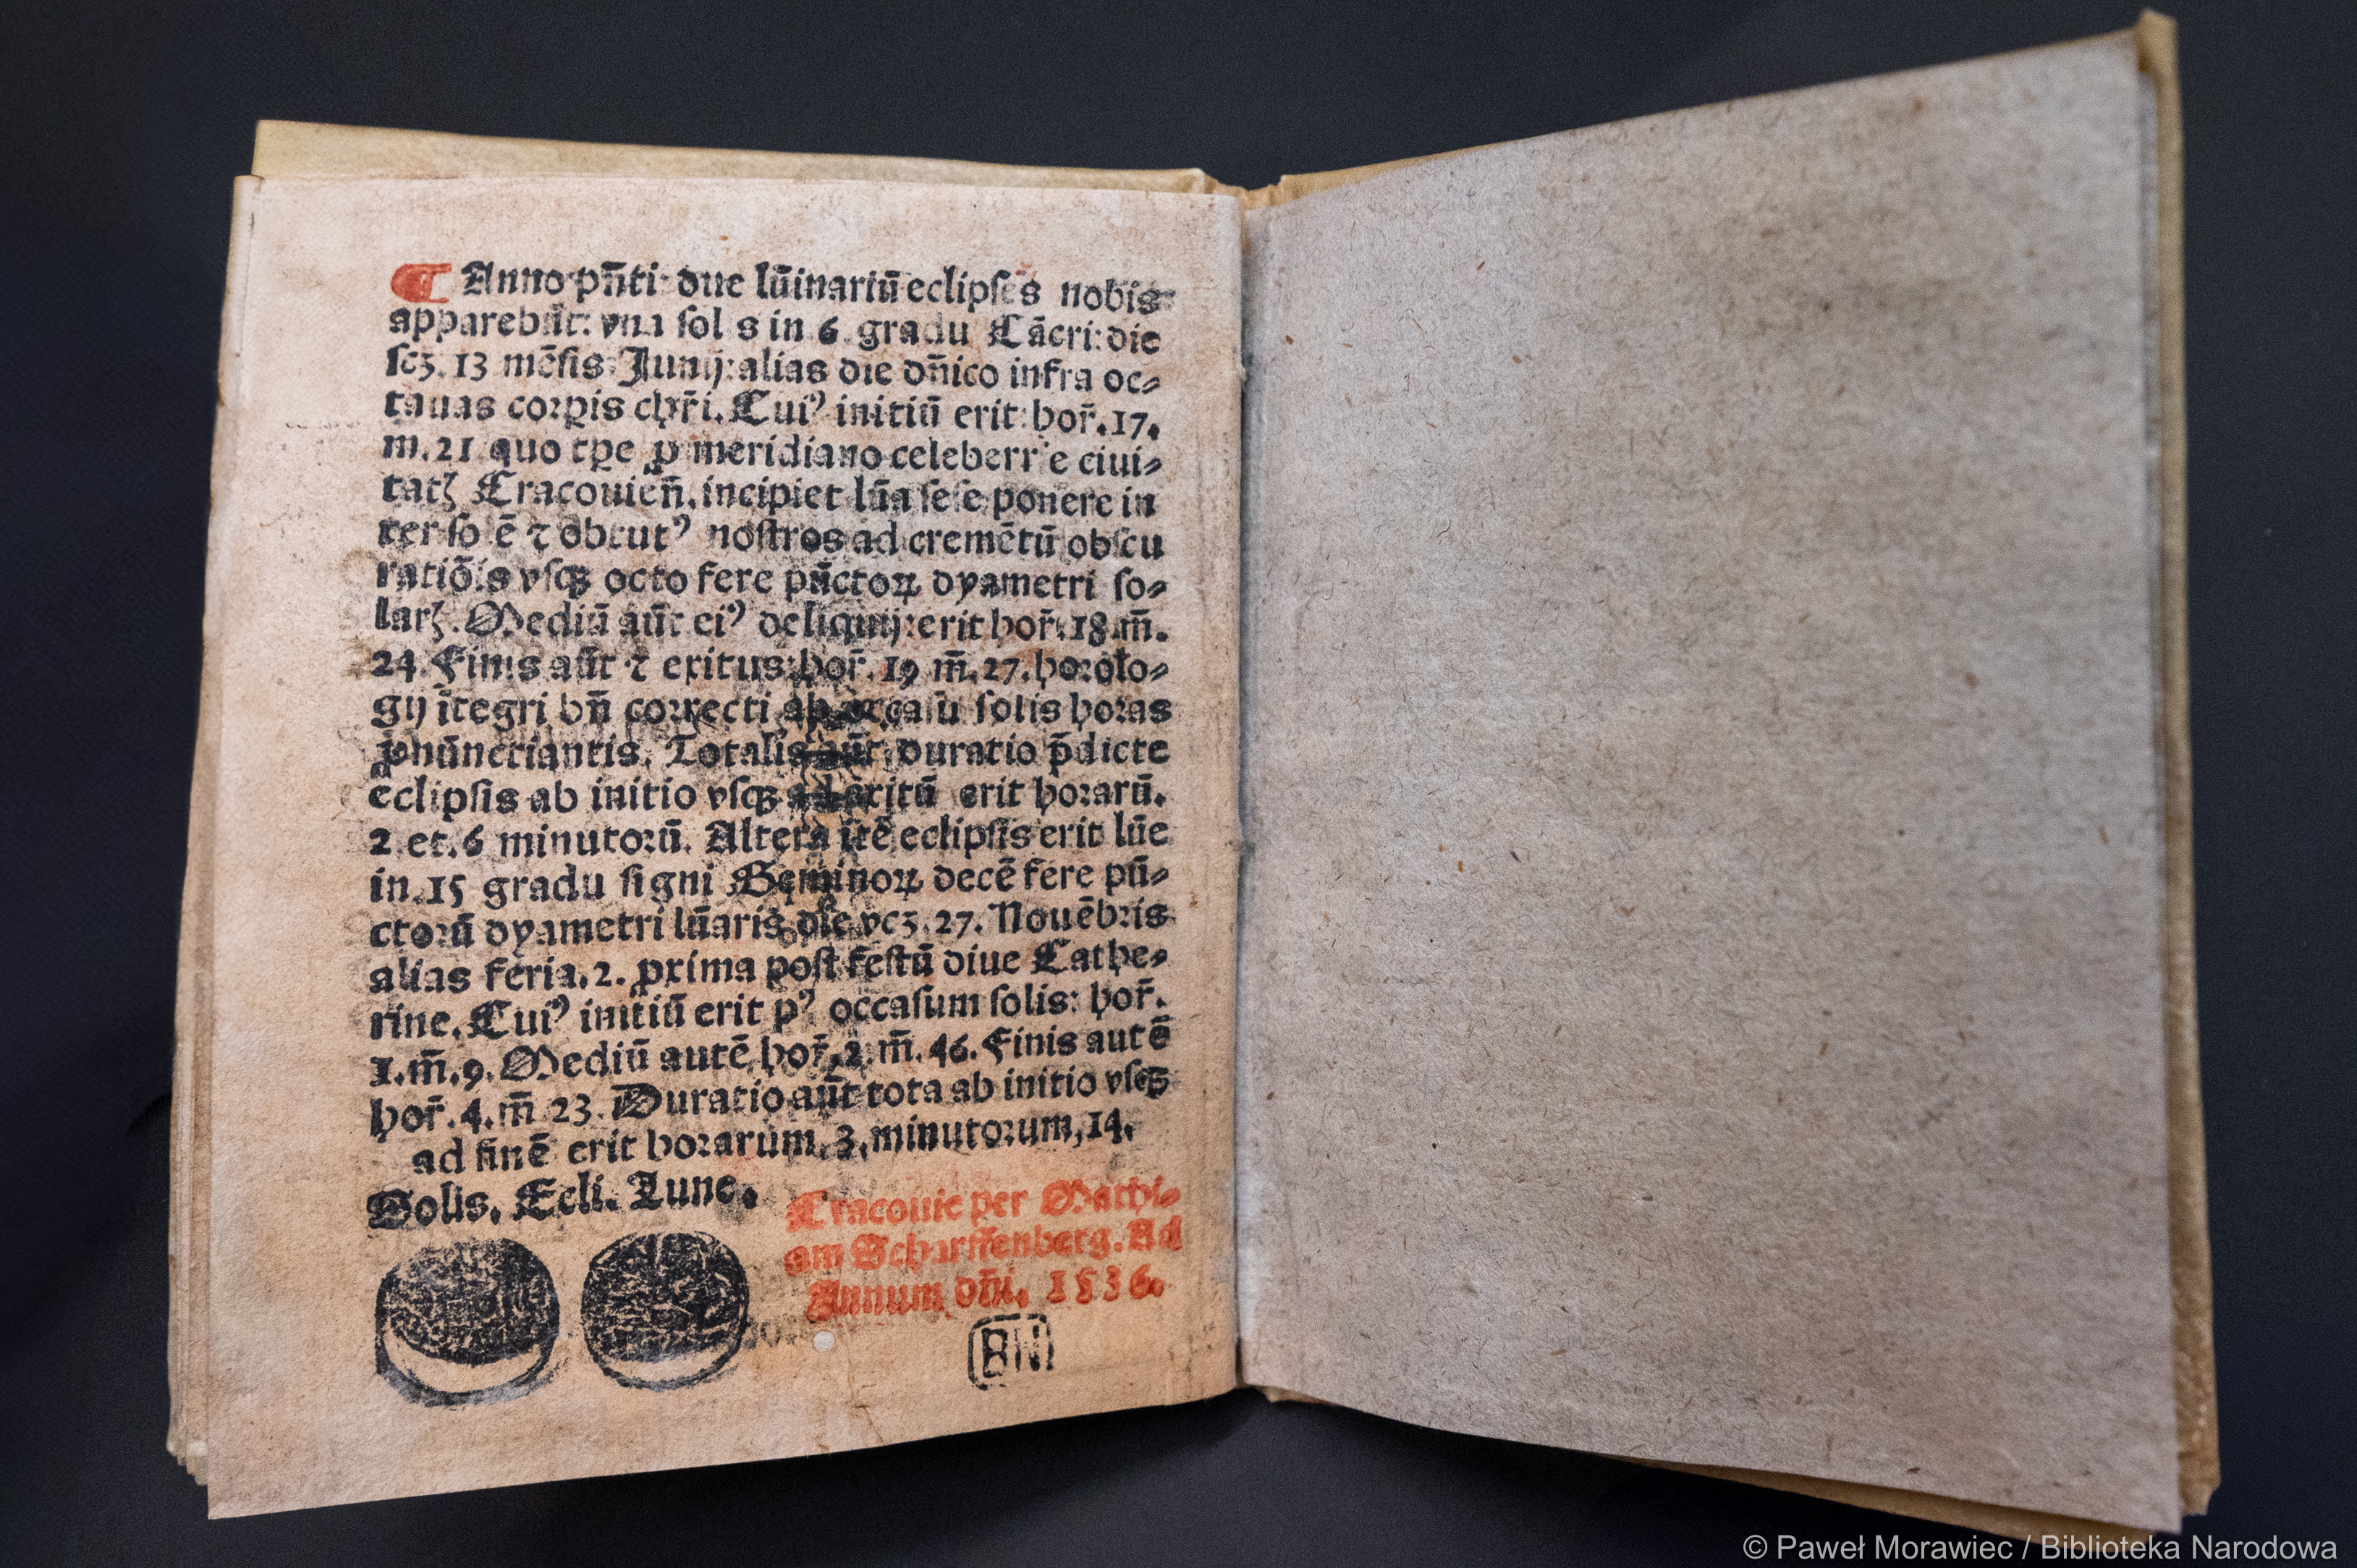 Anno pn̄ti: due lūinariū eclipses nobis
apparebūt: vna sol s in 6 gradu Cācri: die
scʒ. 13 mēsis Junij: alias die dn̄ico infra oc⸗
tauas corꝑis chr̄i. Cuiꝰ initiū erit: hor̄. 17.
m. 21 quo tꝑe ꝑ meridiano celeberr e ciui⸗
tatꝭ Cracouien̄. incipiet lūa sese ponere in
ter so ē ⁊ obtutꝰ nostros ad cremētū obscu
ratiōis vsqꝫ octo fere pūctoꝝ dyametri so⸗
larꝭ. Mediū aūt eiꝰ deliquij: erit hor̄. 18. m̄.
24. Finis aūt ⁊ exitus: hor̄. 19 m̄. 27. horolo⸗
gij ītegri bn̄ correcti ab occasū solis horas
ꝓnūnctiantis. Totalis aūt duratio p̄dicte
eclipsis ab initio vsqꝫ ad exitū erit horarū.
2 et. 6 minutorū. Altera itē eclipsis erit lūe
in. 15 gradu signi Geminoꝝ decē fere pū⸗
ctorū dyametri lūaris die vcʒ. 27. Nouēbris
alias feria. 2. ꝓxima post festū diue Cathe⸗
rine. Cuiꝰ initiū erit pꝰ occasum solis: hor̄.
1. m̄. 9. Mediū autē hor̄. 2. m̄. 46. Finis autē
hor̄. 4. m̄ 23. Duratio aūt tota ab initio vsqꝫ
ad finē erit horarum. 3. minutorum, 14.
Solis. Ecli. Lune.
Cracouie per Mathi⸗
am Scharffenberg. Ad
Annum dn̄i. 1536.
BN
© Paweł Morawiec / Biblioteka Narodowa